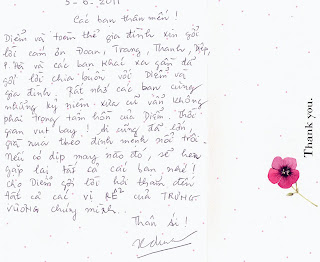 5-6-2011
Các bạn thân mến!
Diễm và toàn thể gia đình xin gởi
lời cảm ơn Đoan, Trang, Thanh, Điệp,
P. Hà và các bạn khác xa gần đã
gởi lời chia buồn với Diễm và
gia đình. Rất nhớ các bạn cùng
những kỷ niệm xưa cũ vẫn không
phai trong tâm hồn của Diễm. Thời
gian vụt bay! ai cũng đã lớn,
già nua theo định mệnh nổi trôi.
Nếu có dịp may nào đó, sẽ hẹn
gặp lại tất cả các bạn nhé!
Cho Diễm gởi lời hỏi thăm đến
tất cả các vị RỂ của TRƯNG
VƯƠNG chúng mình.
Thân ái!
Thank you.